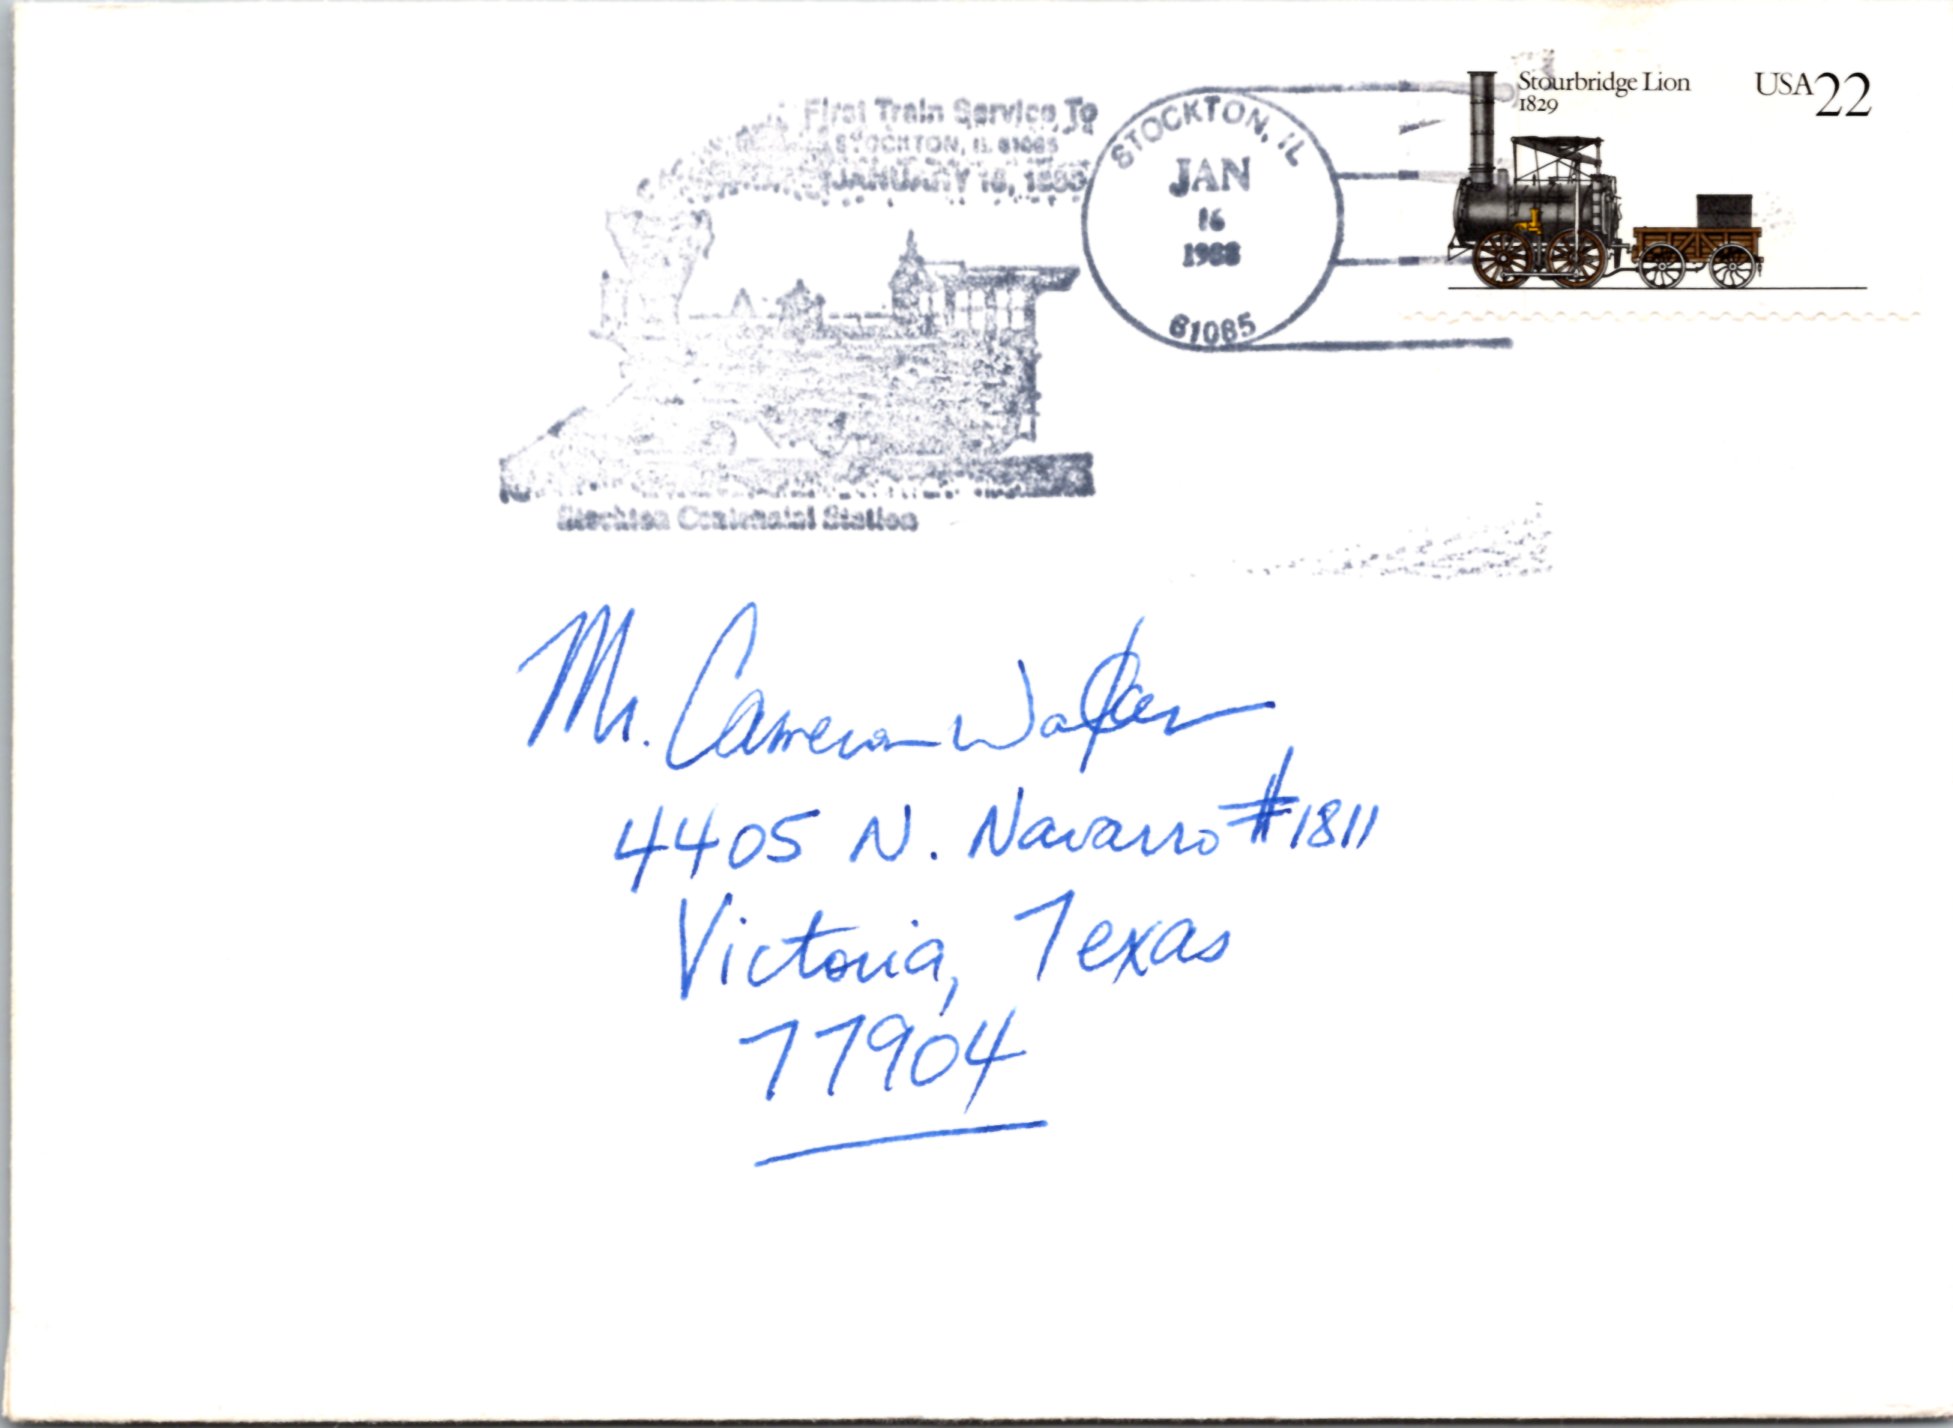 First Train Service To
STOCKTON, IL 61085
JANUARY 16, 1888
Stockton Centennial Station
STOCKTON, IL
JAN
16
1988
61085
Stourbridge Lion
1829
USA 22
Mr. Cameron Walker
4405 N. Navarro #1811
Victoria, Texas
77904